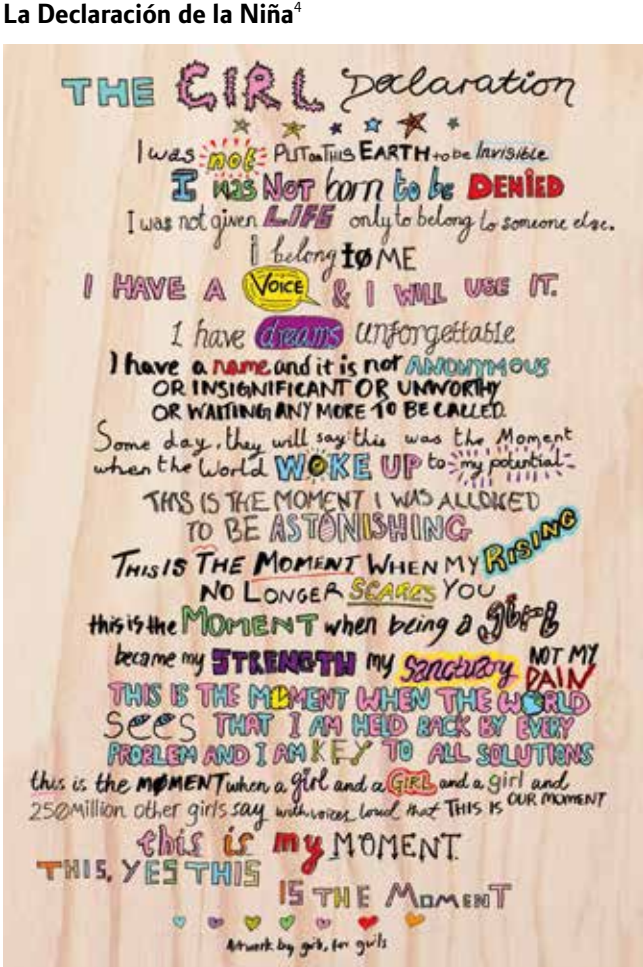 La Declaración de la Niña4
THE GIRL Declaration
I was not PUT on THIS EARTH to be Invisible
I WAS NOT born to be DENIED
I was not given LIFE only to belong to someone else.
I belong to ME
I HAVE A VOICE & I WILL USE IT.
I have dreams unforgettable
I have a name and it is not ANONYMOUS
OR INSIGNIFICANT OR UNWORTHY
OR WAITING ANY MORE TO BE CALLED.
Some day, they will say this was the Moment
when the World WOKE UP to my potential
THIS IS THE MOMENT I WAS ALLOWED
TO BE ASTONISHING
THIS IS THE MOMENT WHEN MY RISING
NO LONGER SCARES YOU
this is the MOMENT when being a girl
became my STRENGTH my Sanctuary NOT MY PAIN
THIS IS THE MOMENT WHEN THE WORLD
SEES THAT I AM HELD BACK BY EVERY
PROBLEM AND I AM KEY TO ALL SOLUTIONS
this is the MOMENT when a girl and a GIRL and a girl and
250 Million other girls say with voices loud that THIS IS OUR MOMENT
this is my MOMENT.
THIS, YES THIS
IS THE MOMENT
Artwork by girls, for girls